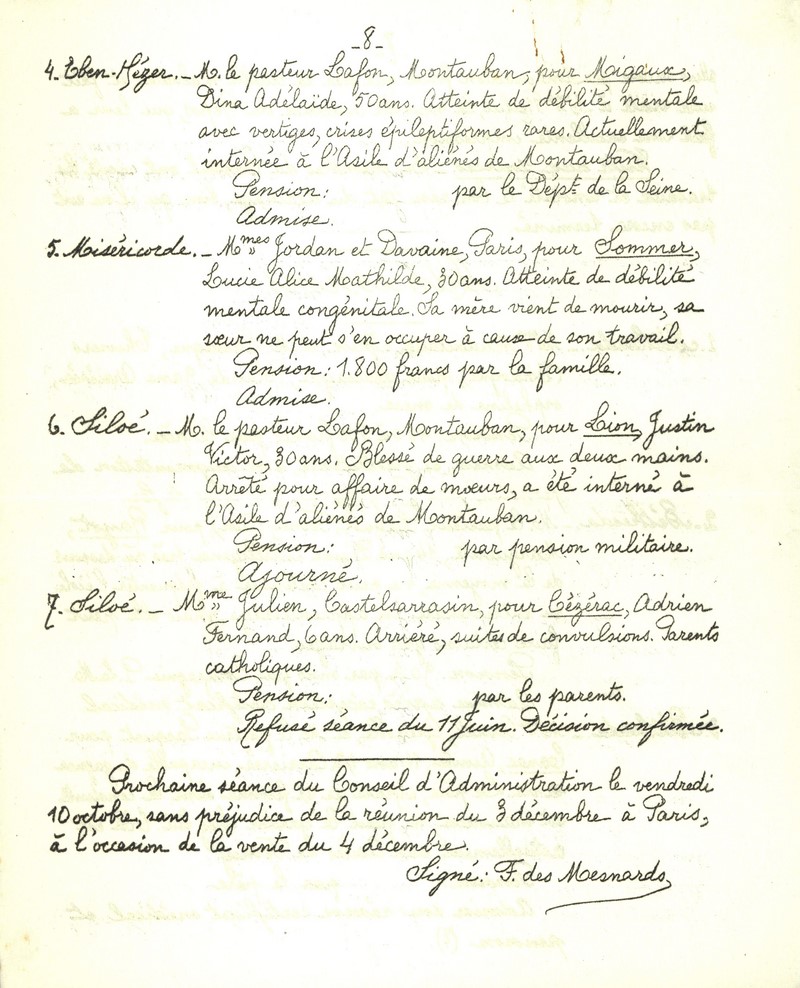 -8-
4. Eben-Hézer. - M. le pasteur Lafon, Montauban, pour Migaux,
Dina Adélaïde, 50 ans. Atteinte de débilité mentale
avec vertiges, crises épileptiformes rares. Actuellement
internée à l'Asile d'aliénés de Montauban.
Pension: par le Dépt de la Seine.
Admise.
5. Miséricorde. - Mmes Jordan et Davaine, Paris, pour Sommer,
Lucie Alice Mathilde, 30 ans. Atteinte de débilité
mentale congénitale. Sa mère vient de mourir, sa
sœur ne peut s'en occuper à cause de son travail.
Pension: 1.800 francs par la famille.
Admise.
6. Siloé. - M. le pasteur Lafon, Montauban, pour Lion, Justin
Victor, 30 ans. Blessé de guerre aux deux mains.
Arrêté pour affaire de mœurs, a été interné à
l'Asile d'aliénés de Montauban.
Pension: par pension militaire.
Ajourné.
7. Siloé. - Mme Julien, Castelsarrasin, pour Cézérac, Adrien
Fernand, 6 ans. Arriéré, suites de convulsions. Parents
catholiques.
Pension: par les parents.
Refusé séance du 11 Juin. Décision confirmée.
Prochaine séance du Conseil d'Administration le vendredi
10 octobre, sans préjudice de la réunion du 3 décembre à Paris,
à l'occasion de la vente du 4 décembre.
Signé: F. des Mesnards